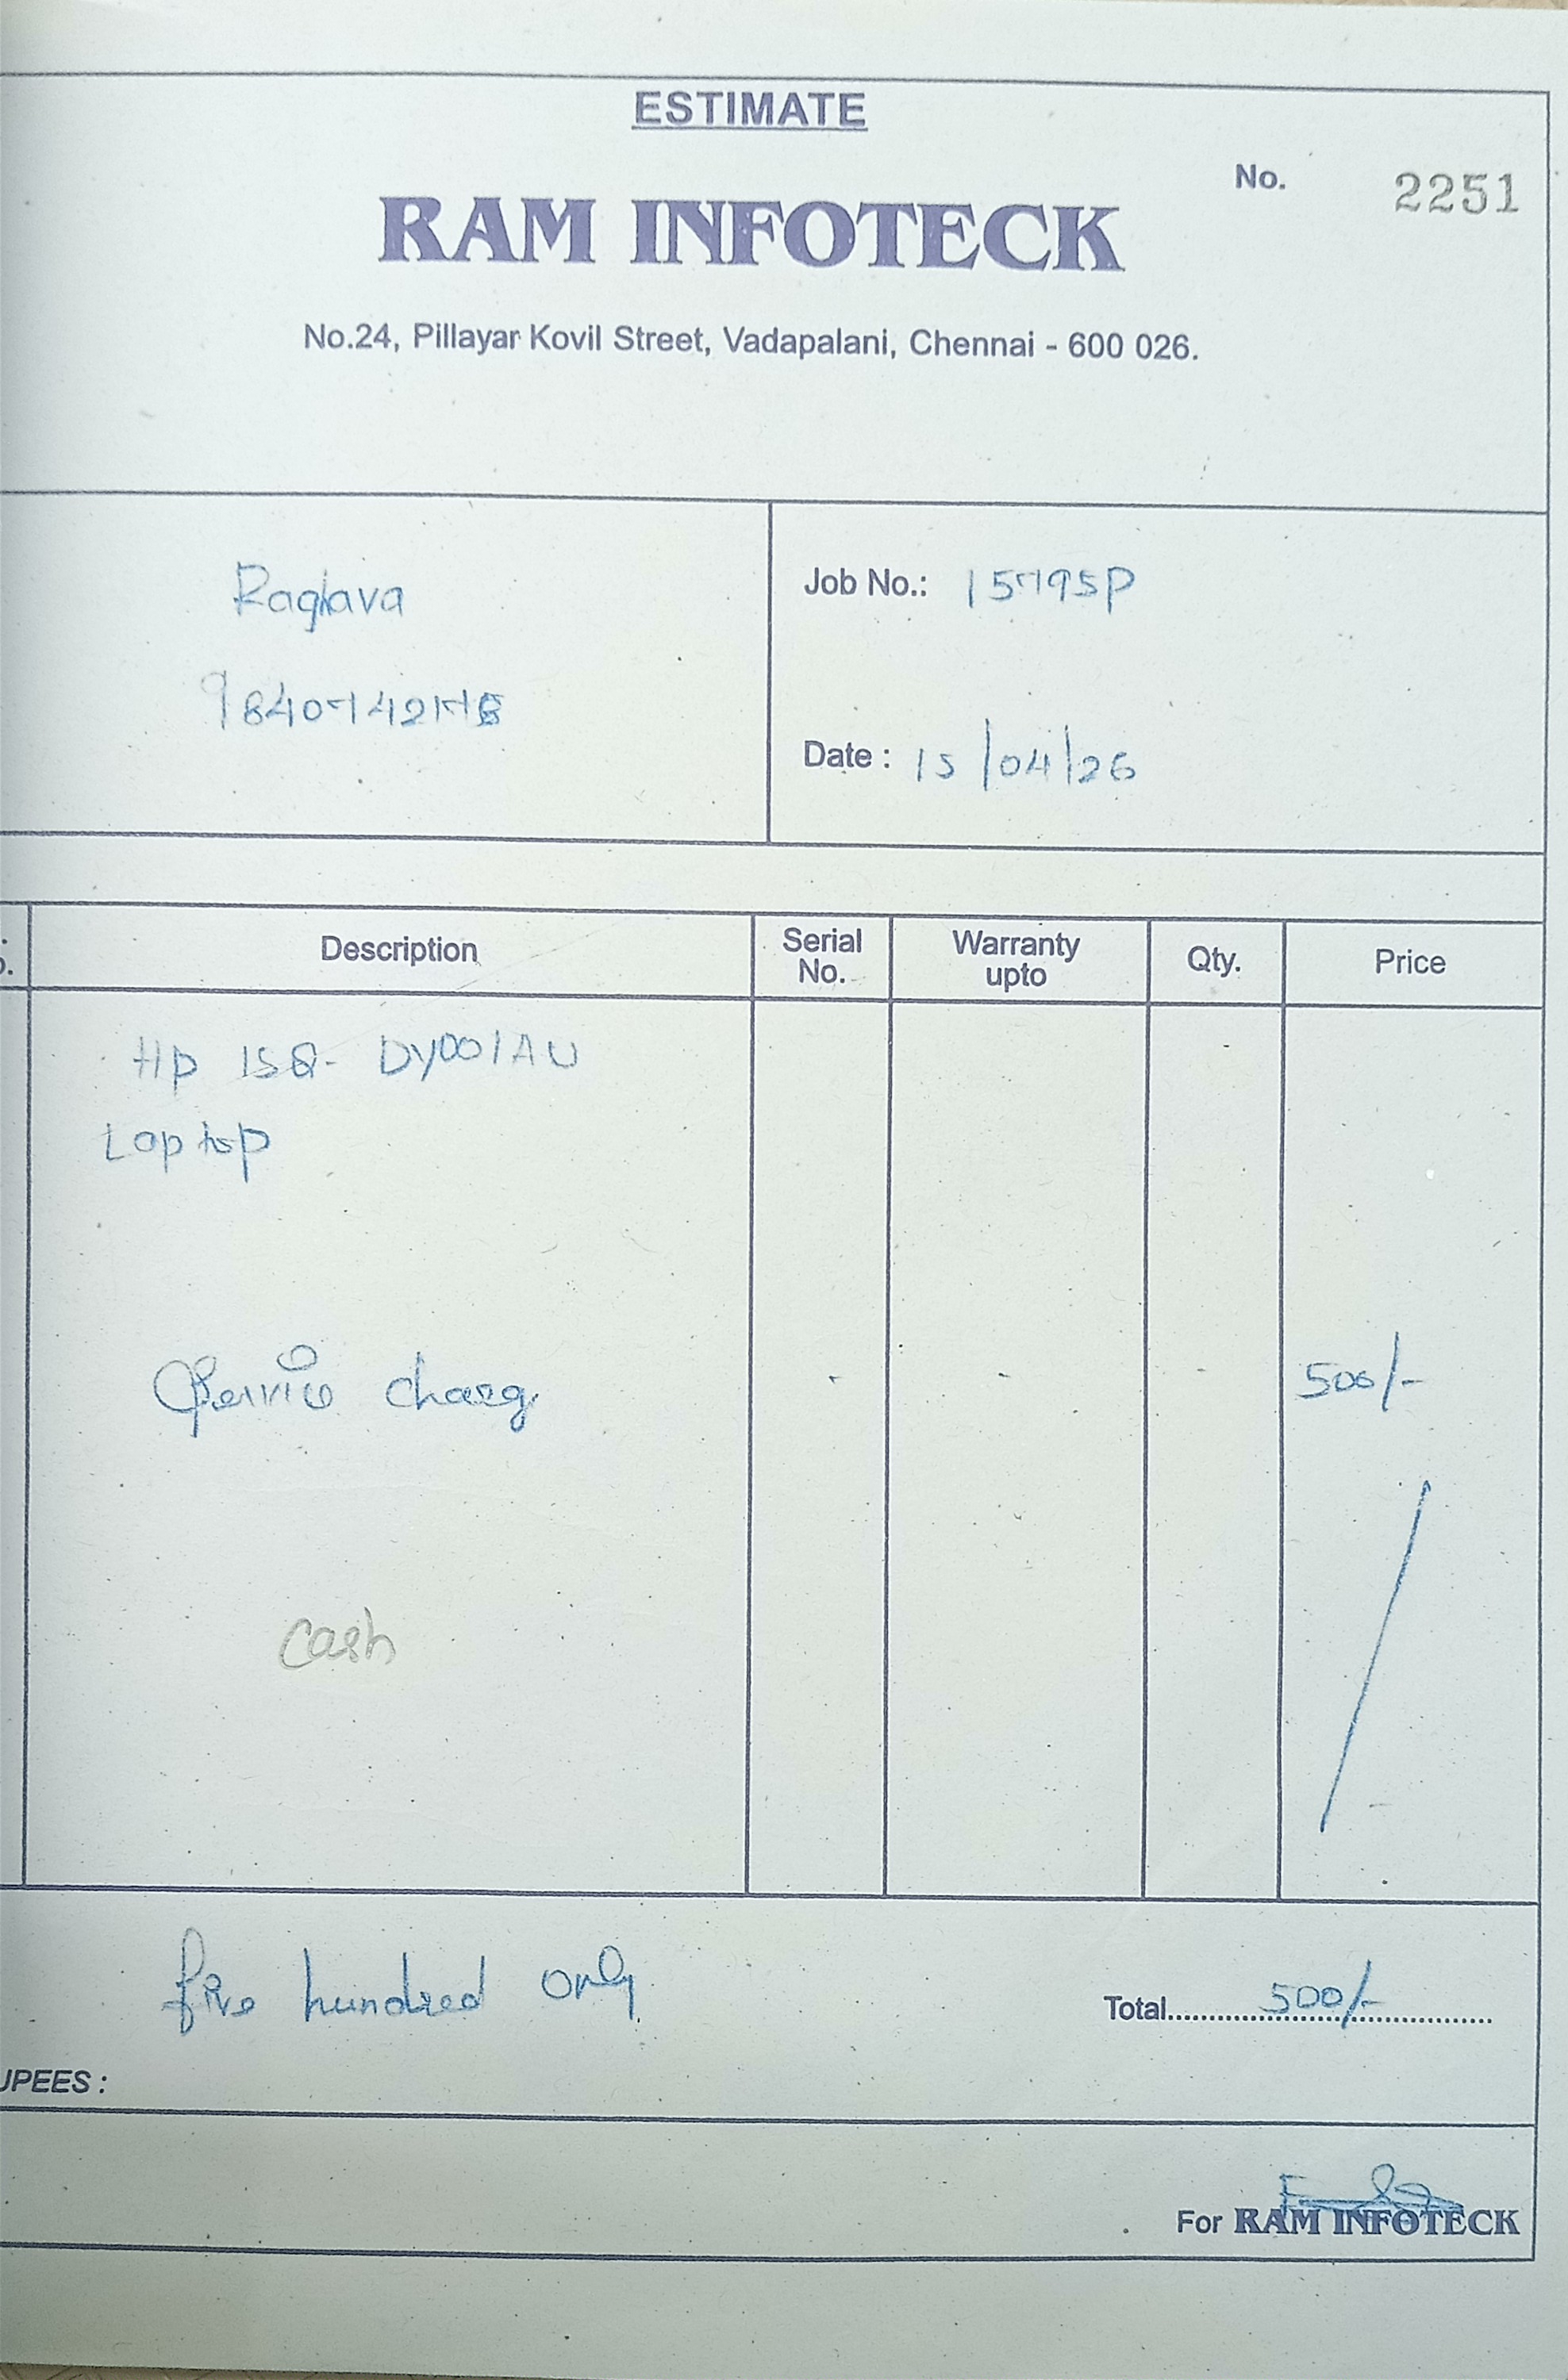 ESTIMATE
No. 2251
RAM INFOTECK
No.24, Pillayar Kovil Street, Vadapalani, Chennai - 600 026.
Raghava
Job No.: 15795P
Date : 15/04/26
Description Serial No. Warranty upto Qty. Price
Hp 15S- DY001AU
Laptop
Service charg 500/-
Cash
five hundred only
Total 500/-
UPEES :
For RAM INFOTECK